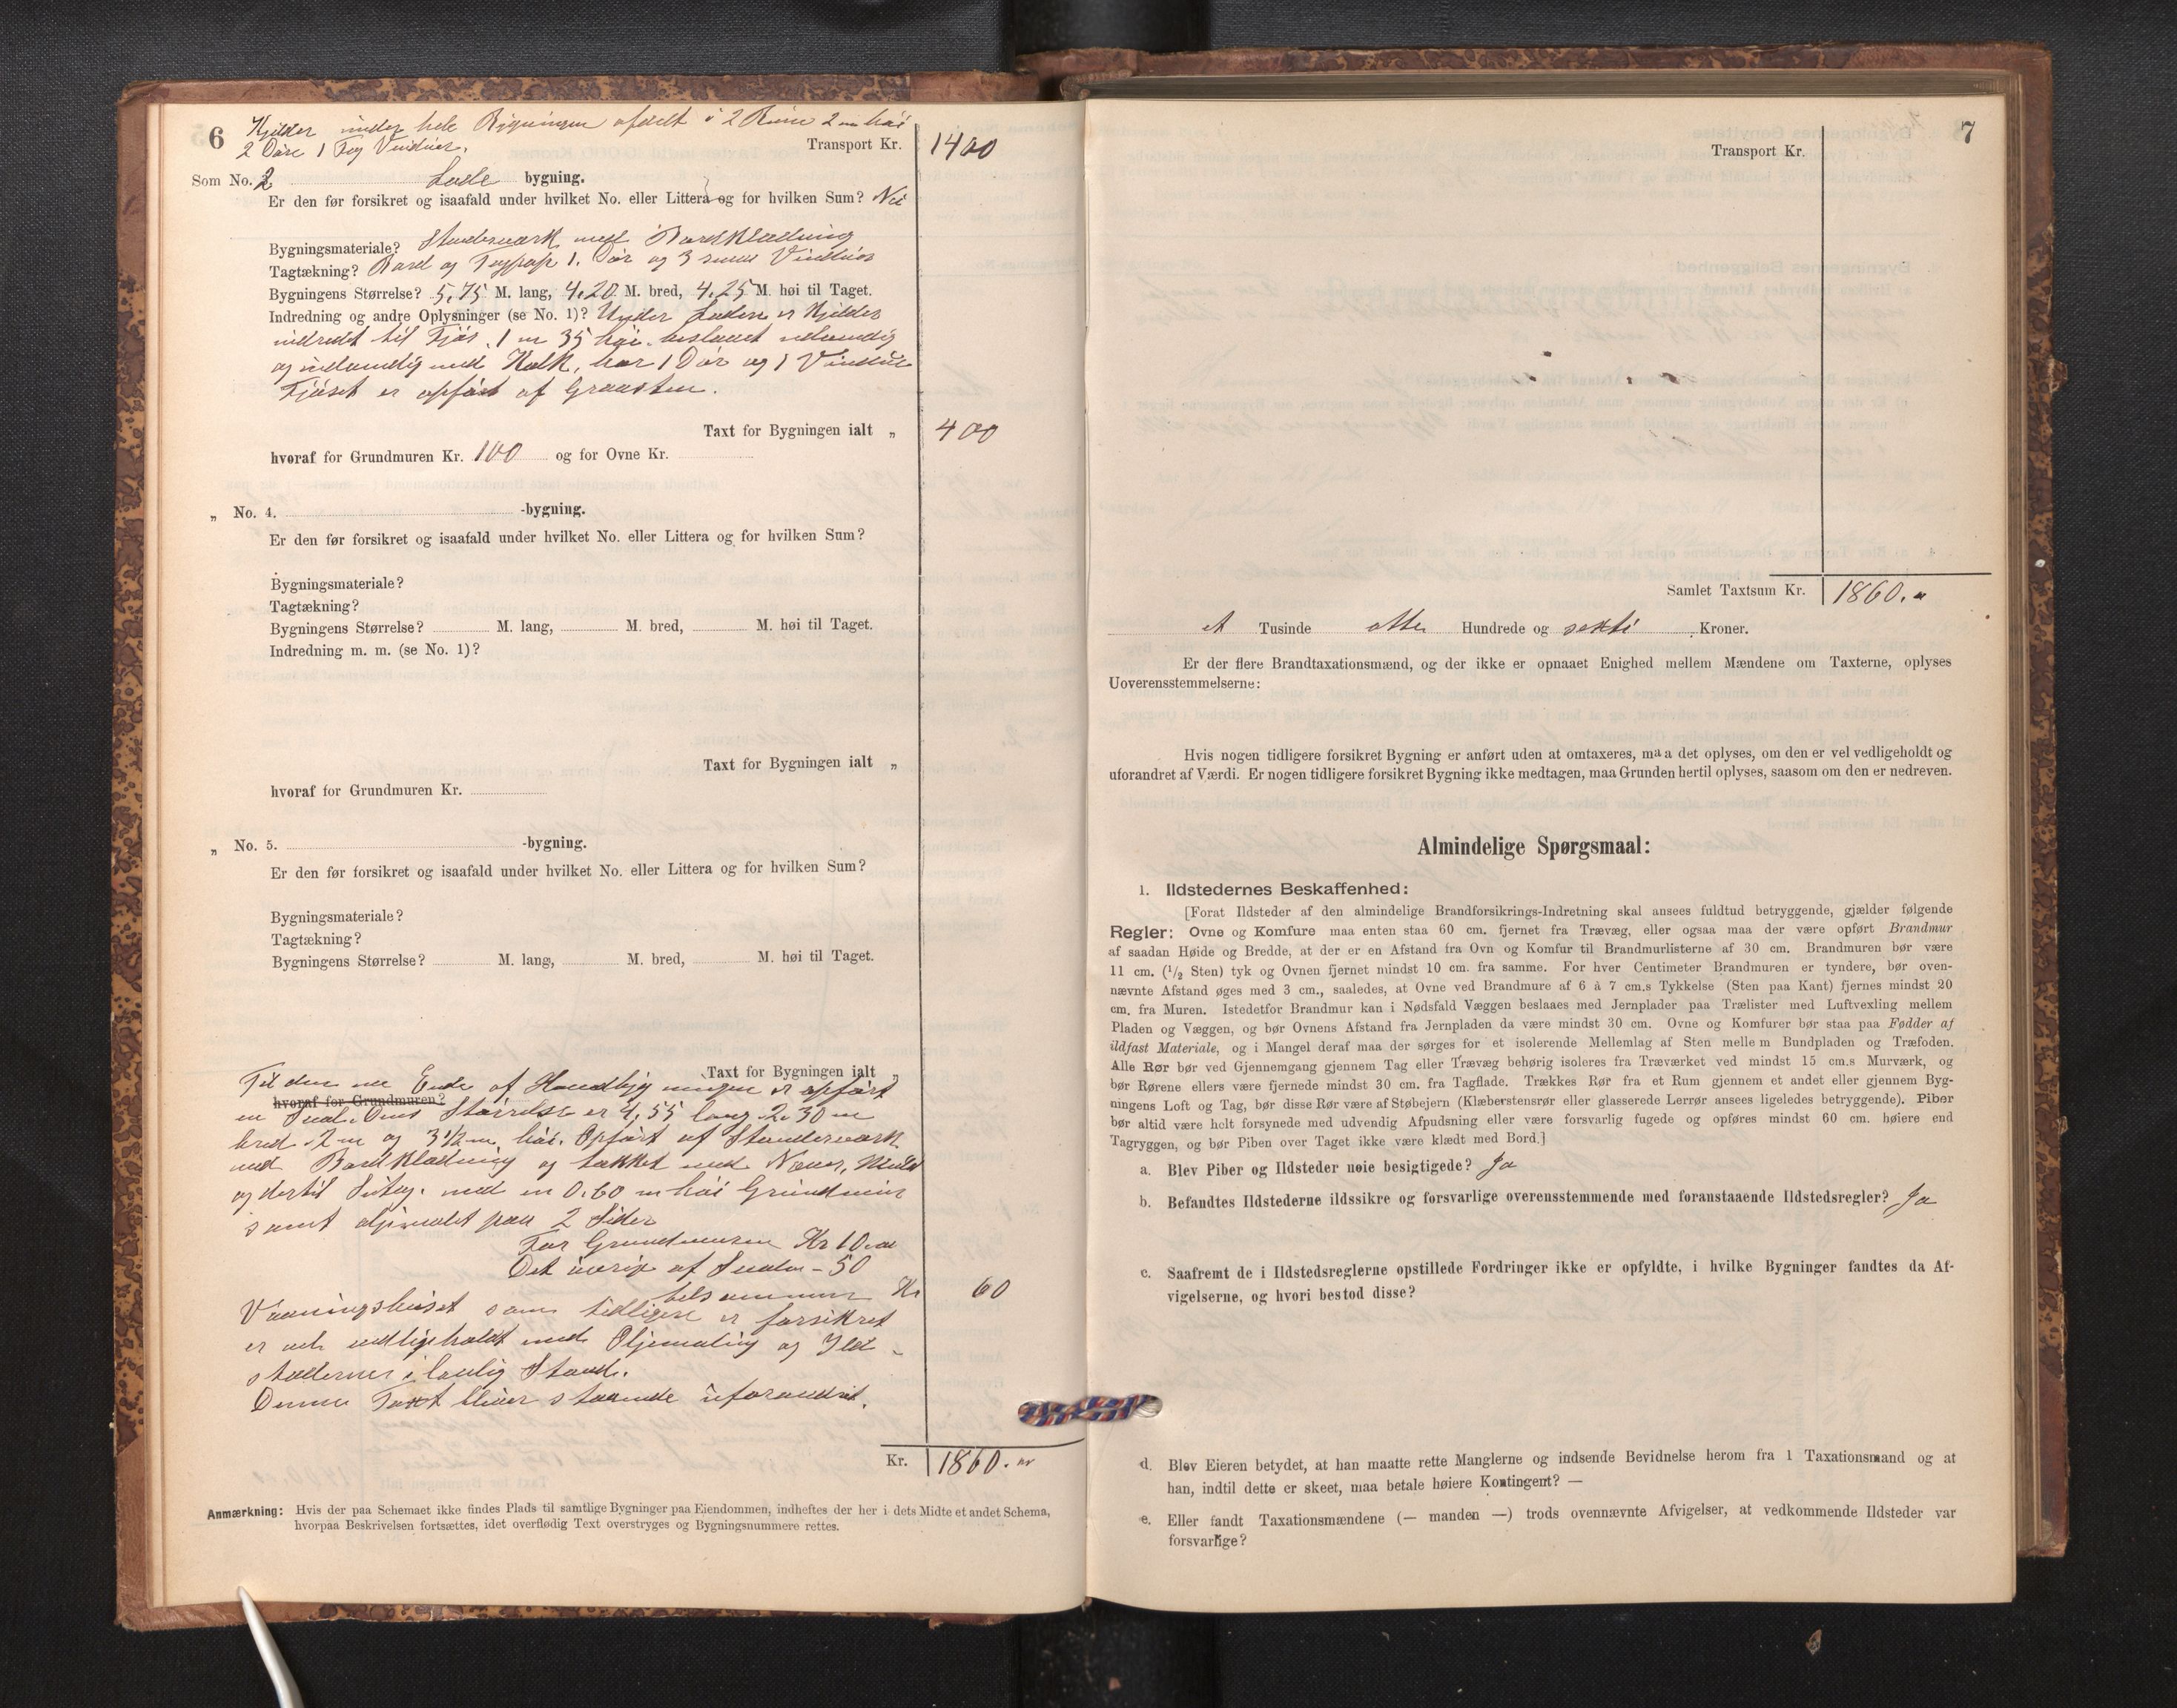 6
Kjelder under hele Bygningen afdelt i 2 Rum 2 m høi
2 Døre 1 Fag Vinduer.
Transport Kr. 1400
Som No. 2 Lade bygning.
Er den før forsikret og isaafald under hvilket No. eller Littera og for hvilken Sum? Nei
Bygningsmateriale? Standerværk med Bordklædning
Tagtækning? Bord og Tagpap 1. Dør og 3 smaa Vinduer
Bygningens Størrelse? 5,75 M. lang, 4,20 M. bred, 4,25 M. høi til Taget.
Indredning og andre Oplysninger (se No. 1)? Under Laden er Kjelder
indredet til Fjøs, 1 m 35 høi. beslaaet udvendig
og indvendig med Kalk, har 1 Dør og 1 Vindue
Fjøset er opført af Graasten.
Taxt for Bygningen ialt „ 400
hvoraf for Grundmuren Kr. 100 og for Ovne Kr.
„ No. 4. -bygning.
Er den før forsikret og isaafald under hvilket No. eller Littera og for hvilken Sum?
Bygningsmateriale?
Tagtækning?
Bygningens Størrelse? M. lang, M. bred, M. høi til Taget.
Indredning m. m. (se No. 1)?
Taxt for Bygningen ialt „
hvoraf for Grundmuren Kr.
„ No. 5. -bygning.
Er den før forsikret og isaafald under hvilket No. eller Littera og for hvilken Sum?
Bygningsmateriale?
Tagtækning?
Bygningens Størrelse? M. lang, M. bred, M. høi til Taget.
Taxt for Bygningen ialt „
Til den ene Ende af Hovedbygningen er opført
hvoraf for Grundmuren?
en Sval. Dens Størrelse er 4,55 lang 2.30 m
bred 2 m og 3 1/2 m høi. Opført af Standerværk
med Bordklædning og tækket med Næver, Muld
og dertil med en 0.60 m høi Grundmur
samt oljemalet paa 2 Sider
For Grundmuren Kr 10.00
Det øvrige af Svalen - 50
tilsammen Kr 60
Vaaningshuset som tidligere er forsikret
er vel vedligeholdt med Oljemaling og Ild-
stederne i lovlig Stand.
Denne Taxt bliver staaende uforandret.
Kr. 1860.00
Anmærkning: Hvis der paa Schemaet ikke findes Plads til samtlige Bygninger paa Eiendommen, indheftes der her i dets Midte et andet Schema,
hvorpaa Beskrivelsen fortsættes, idet overflødig Text overstryges og Bygningsnummere rettes.
7
Transport Kr.
Samlet Taxtsum Kr. 1860.00
et Tusinde otte Hundrede og seksti Kroner.
Er der flere Brandtaxationsmænd, og der ikke er opnaaet Enighed mellem Mændene om Taxterne, oplyses
Uoverensstemmelserne:
Hvis nogen tidligere forsikret Bygning er anført uden at omtaxeres, maa det oplyses, om den er vel vedligeholdt og
uforandret af Værdi. Er nogen tidligere forsikret Bygning ikke medtagen, maa Grunden hertil oplyses, saasom om den er nedreven.
Almindelige Spørgsmaal:
1. Ildstedernes Beskaffenhed:
[Forat Ildsteder af den almindelige Brandforsikrings-Indretning skal ansees fuldtud betryggende, gjælder følgende
Regler: Ovne og Komfure maa enten staa 60 cm. fjernet fra Trævæg, eller ogsaa maa der være opført Brandmur
af saadan Høide og Bredde, at der er en Afstand fra Ovn og Komfur til Brandmurlisterne af 30 cm. Brandmuren bør være
11 cm. (1/2 Sten) tyk og Ovnen fjernet mindst 10 cm. fra samme. For hver Centimeter Brandmuren er tyndere, bør oven-
nævnte Afstand øges med 3 cm., saaledes, at Ovne ved Brandmure af 6 à 7 cm.s Tykkelse (Sten paa Kant) fjernes mindst 20
cm. fra Muren. Istedetfor Brandmur kan i Nødsfald Væggen beslaaes med Jernplader paa Trælister med Luftvexling mellem
Pladen og Væggen, og bør Ovnens Afstand fra Jernpladen da være mindst 30 cm. Ovne og Komfurer bør staa paa Fødder af
ildfast Materiale, og i Mangel deraf maa der sørges for et isolerende Mellemlag af Sten mellem Bundpladen og Træfoden.
Alle Rør bør ved Gjennemgang gjennem Tag eller Trævæg behørig isoleres fra Træværket ved mindst 15 cm.s Murværk, og
bør Rørene ellers være fjernede mindst 30 cm. fra Tagflade. Trækkes Rør fra et Rum gjennem et andet eller gjennem Byg-
ningens Loft og Tag, bør disse Rør være af Støbejern (Klæberstensrør eller glasserede Lerrør ansees ligeledes betryggende). Piber
bør altid være helt forsynede med udvendig Afpudsning eller være forsvarlig fugede og opføres mindst 60 cm. høiere end
Tagryggen, og bør Piben over Taget ikke være klædt med Bord.]
a. Blev Piber og Ildsteder nøie besigtigede? Ja
b. Befandtes Ildstederne ildssikre og forsvarlige overensstemmende med foranstaaende Ildstedsregler? Ja
c. Saafremt de i Ildstedsreglerne opstillede Fordringer ikke er opfyldte, i hvilke Bygninger fandtes da Af-
vigelserne, og hvori bestod disse?
d. Blev Eieren betydet, at han maatte rette Manglerne og indsende Bevidnelse herom fra 1 Taxationsmand og at
han, indtil dette er skeet, maa betale høiere Kontingent? —
e. Eller fandt Taxationsmændene (— manden —) trods ovennævnte Afvigelser, at vedkommende Ildsteder var
forsvarlige?